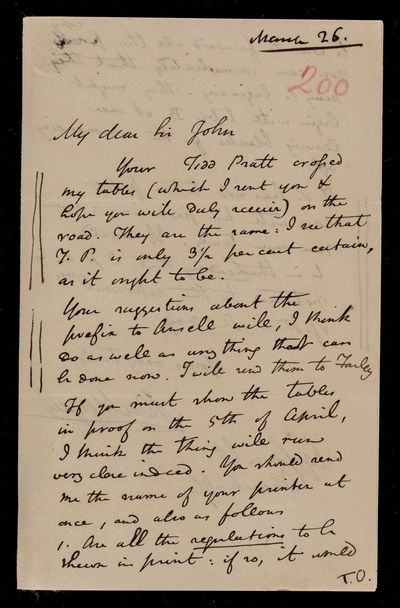 March 26.
200
My dear Sir John
Your Tidd Pratt crossed
my tables (which I sent you &
hope you will duly receive) on the
road. They are the same: I see that
T. P. is only 3½ per cent certain,
as it ought to be.
Your suggestions about the
prefix to Ansell will, I think
do as well as any thing that can
be done now. I will send them to Farley
If you must show the tables
in proof on the 5th of April,
I think the thing will run
very close indeed. You should send
me the name of your printer at
once, and also as follows
1. Are all the regulations to be
shewn in print: if so, it would
T.O.